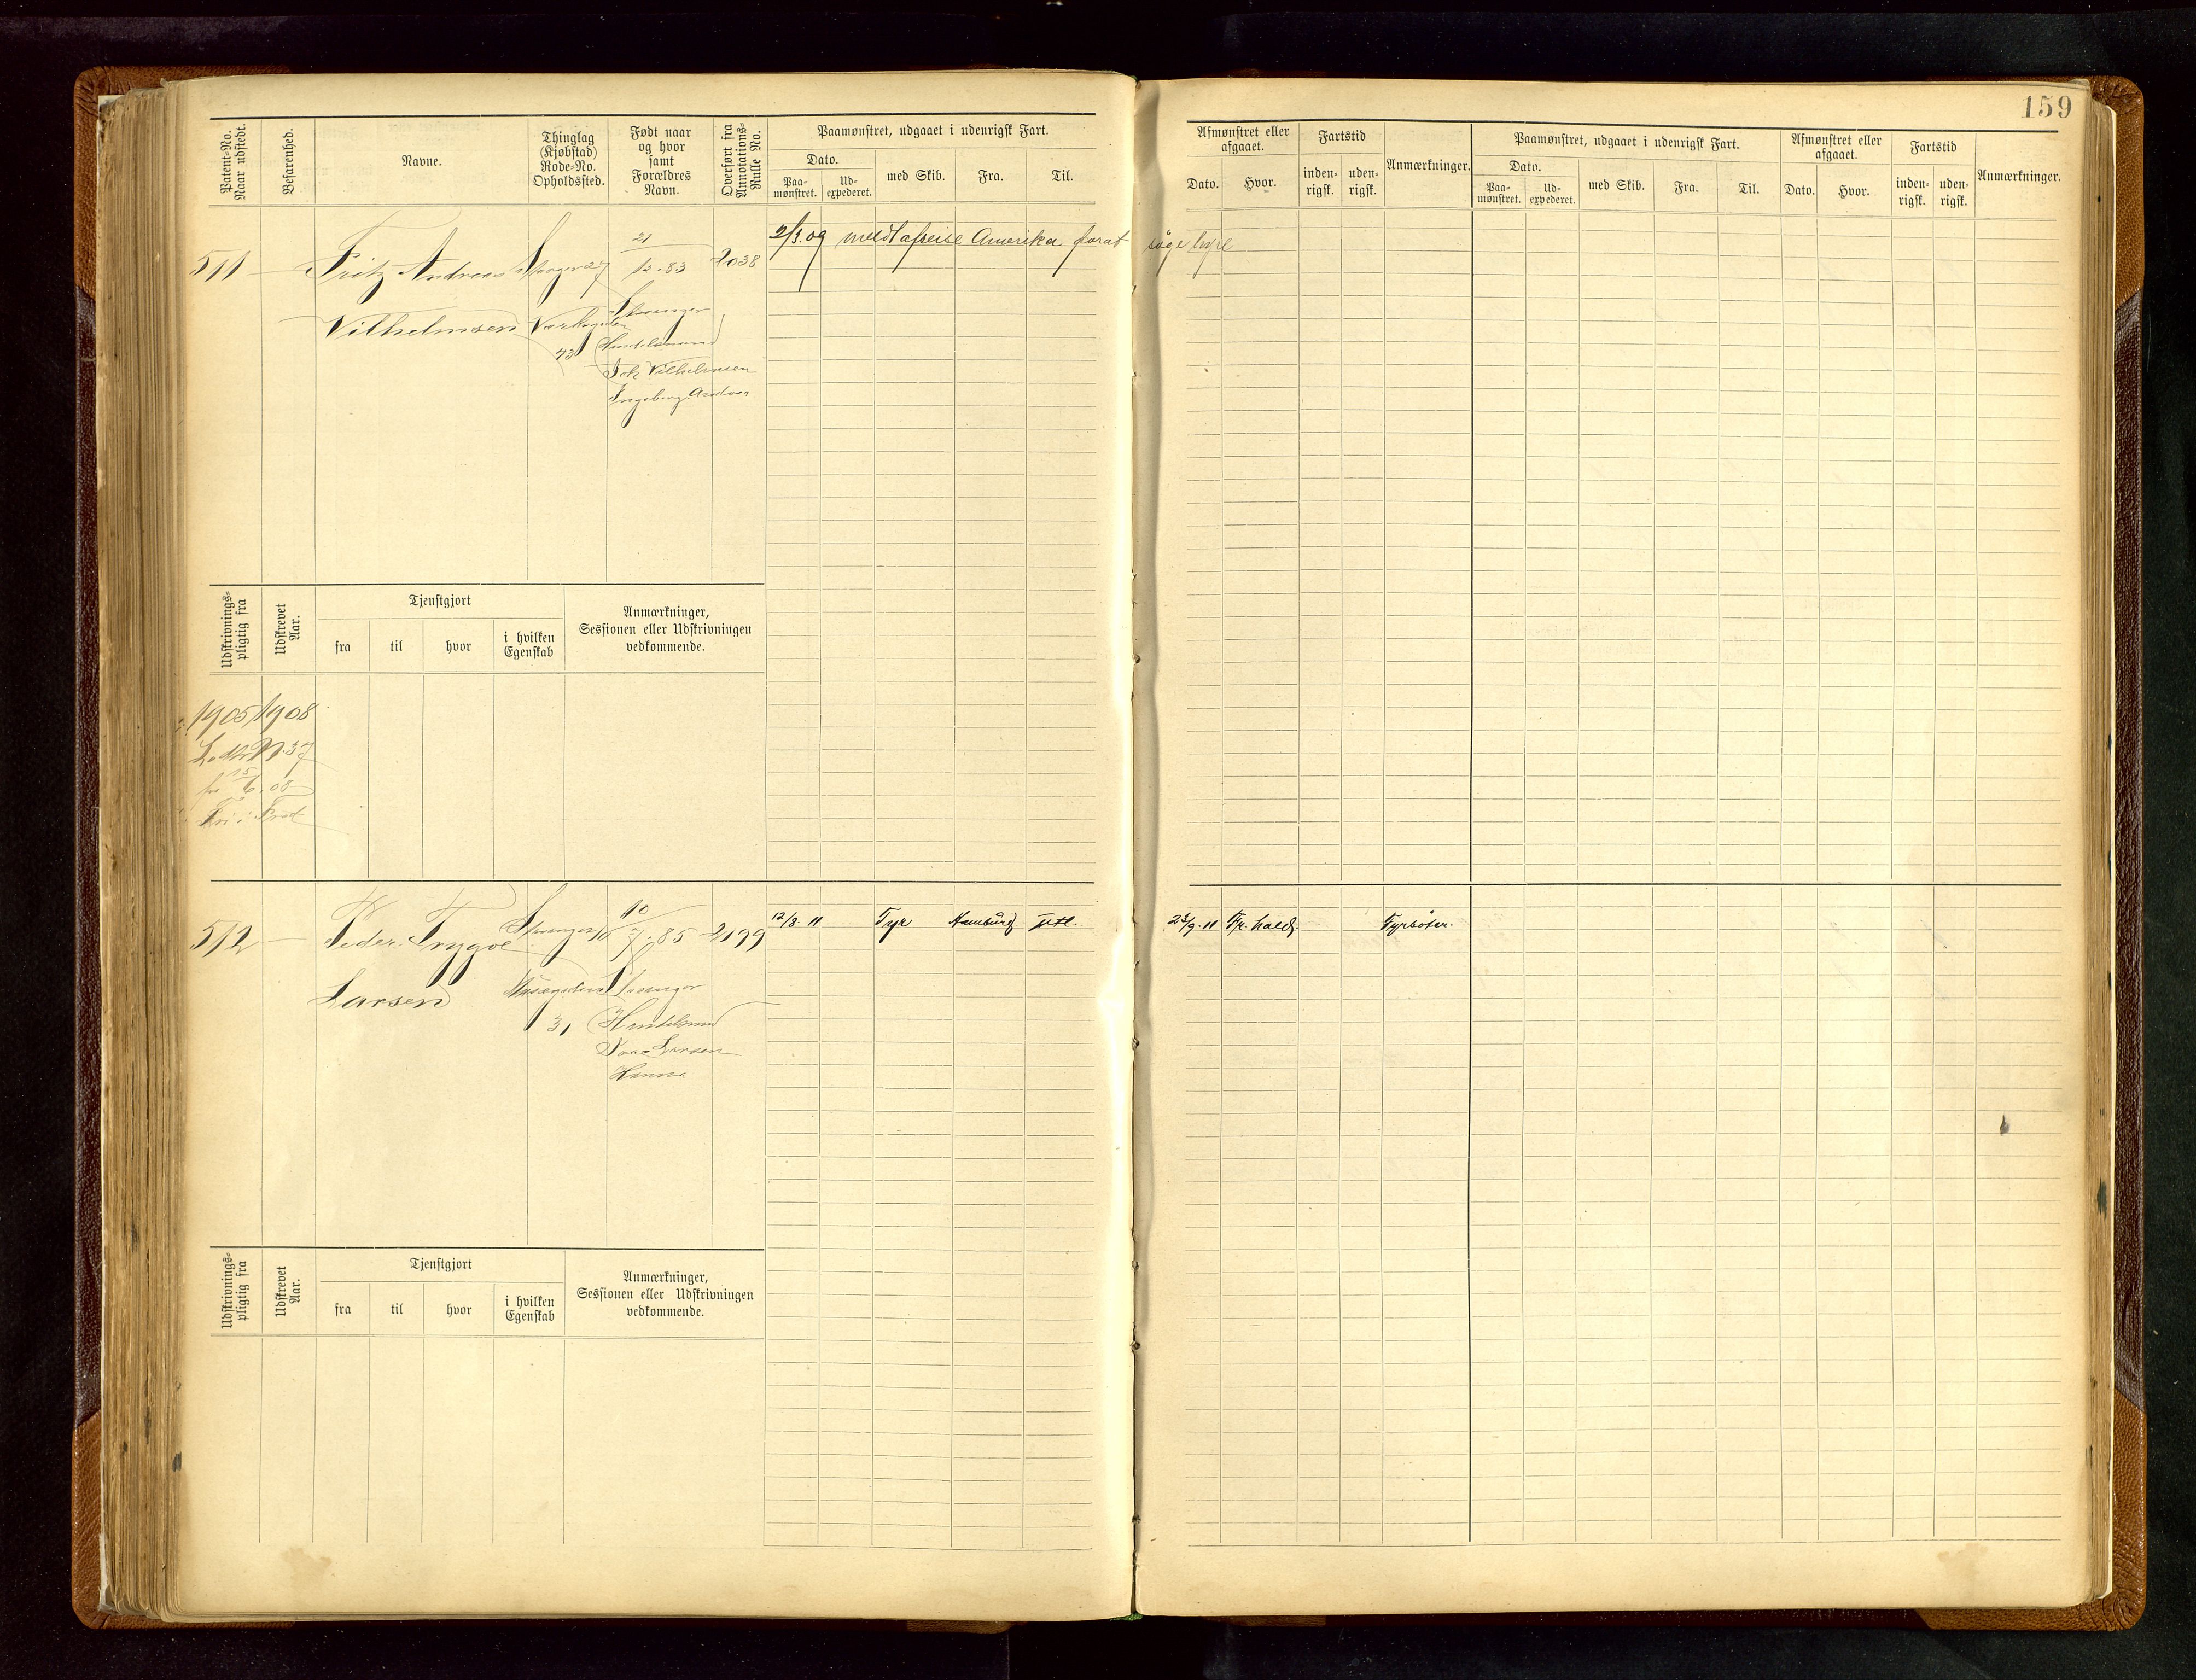 159
Patent-No. Naar udstedt.
Befarenhed.
Navne.
Thinglag (Kjøbstad) Rode-No. Opholdssted.
Født naar og hvor samt Forældres Navn.
Overført fra Annotations-Rulle No.
Paamønstret, udgaaet i udenrigsk Fart.
Dato.
Paa-mønstret.
Ud-expederet.
med Skib.
Fra.
Til.
Afmønstret eller afgaaet.
Dato.
Hvor.
Fartstid
inden-rigsk.
uden-rigsk.
Anmærkninger.
Paamønstret, udgaaet i udenrigsk Fart.
Dato.
Paa-mønstret.
Ud-expederet.
med Skib.
Fra.
Til.
Afmønstret eller afgaaet.
Dato.
Hvor.
Fartstid
inden-rigsk.
uden-rigsk.
Anmærkninger.
511 Fritz Andreas 21/12.83 2038 2/3.09 meldt afreise Amerika forat søge hyre
Vilhelmsen Stavanger
43 Handelsmand
Joh Vilhelmsen
Ingeborg
Udskrivnings-pligtig fra
Udskrevet Aar.
Tjenstgjort
fra
til
hvor
i hvilken Egenskab
Anmærkninger, Sessionen eller Udskrivningen vedkommende.
1905 1908
N. 37
15/6.08
Fri i Fred
512 Peder Trygve Stavanger 10/7.85 2199 12/8.11 Tyr Hamburg utl. 25/9.11 Fyrbøter.
Larsen Stavanger
31 Handelsmand
Larsen
Hanna
Udskrivnings-pligtig fra
Udskrevet Aar.
Tjenstgjort
fra
til
hvor
i hvilken Egenskab
Anmærkninger, Sessionen eller Udskrivningen vedkommende.